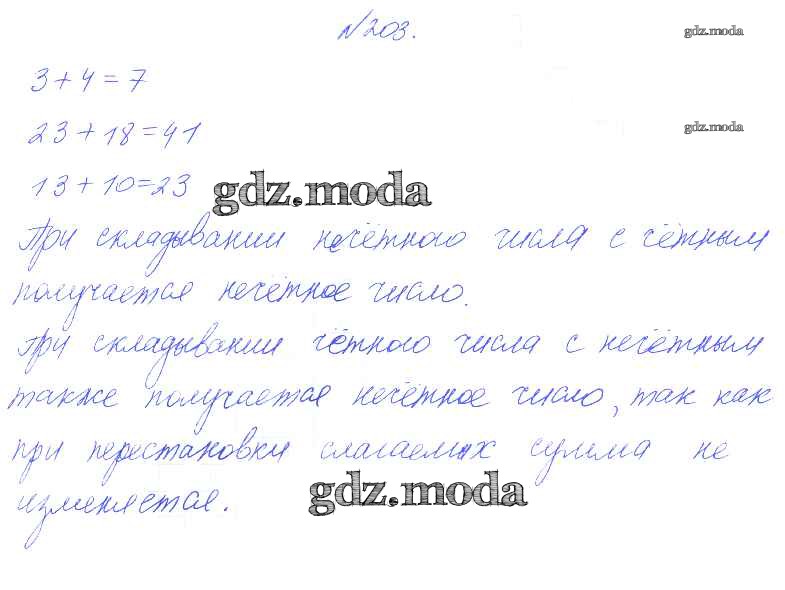 №203.
gdz.moda
3+4=7
23+18=41
gdz.moda
13+10=23
gdz.moda
При складывании нечётного числа с чётным
получается нечётное число.
При складывании чётного числа с нечётным
также получается нечётное число, так как
при перестановки слагаемых сумма не
изменяется.
gdz.moda